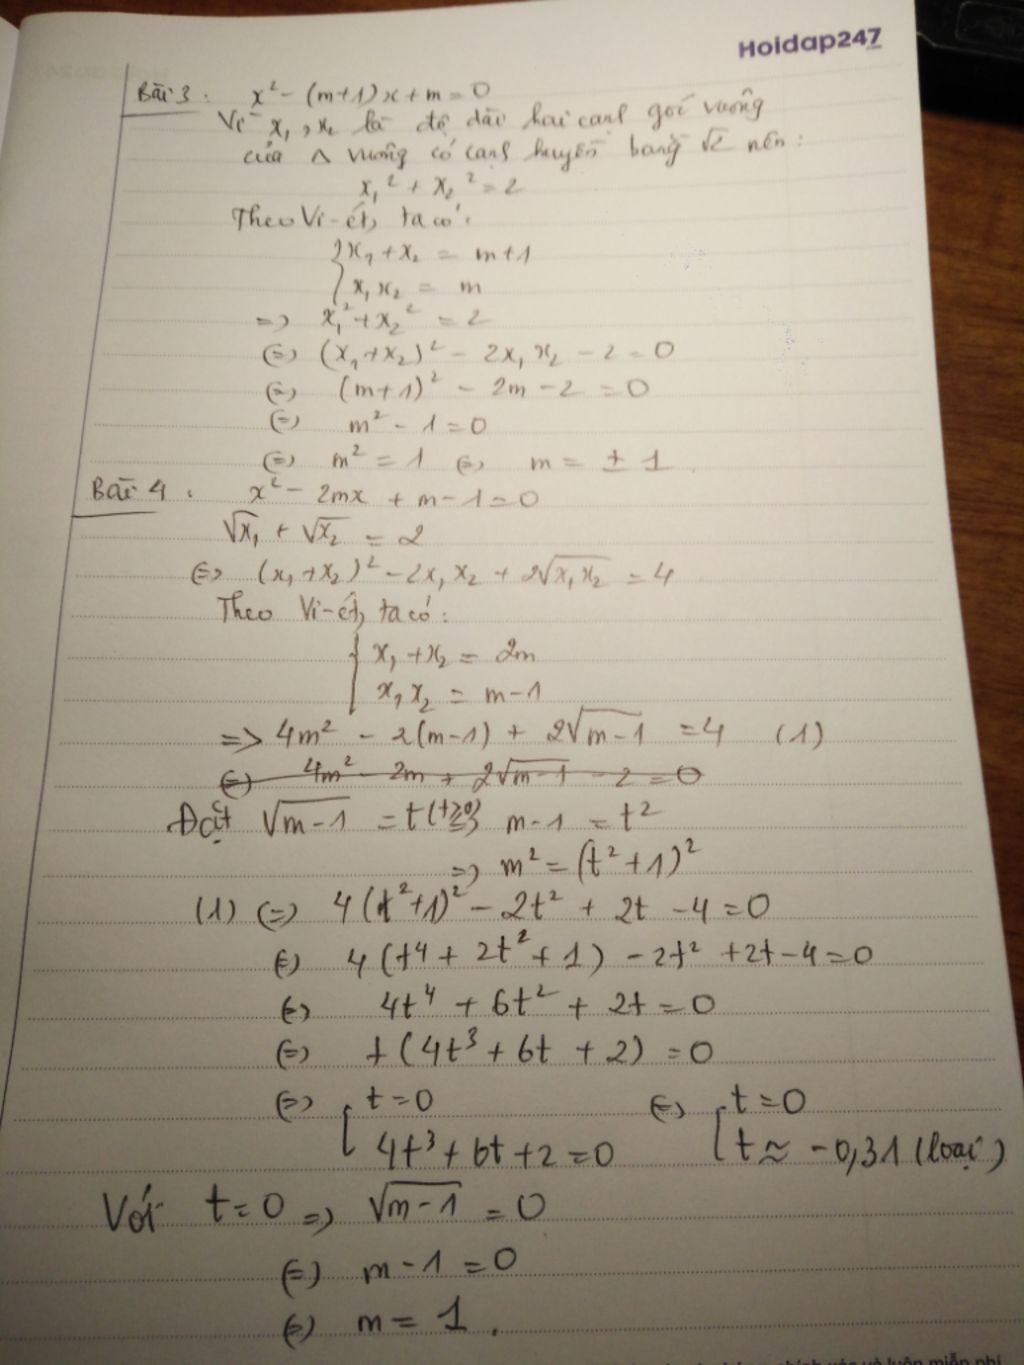 Hoidap247
Bài 3: x² - (m+1)x + m = 0
Vì x₁, x₂ là độ dài hai cạnh góc vuông
của Δ vuông có cạnh huyền bằng √2 nên:
x₁² + x₂² = 2
Theo Vi-ét, ta có:
{ x₁ + x₂ = m+1
x₁x₂ = m
=> x₁² + x₂² = 2
(=) (x₁+x₂)² - 2x₁x₂ - 2 = 0
(=) (m+1)² - 2m - 2 = 0
(=) m² - 1 = 0
(=) m² = 1 (=) m = ± 1
Bài 4: x² - 2mx + m - 1 = 0
√x₁ + √x₂ = 2
(=) (x₁+x₂)² - 2x₁x₂ + 2√x₁x₂ = 4
Theo Vi-ét, ta có:
{ x₁ + x₂ = 2m
x₁x₂ = m-1
=> 4m² - 2(m-1) + 2√m-1 = 4 (1)
(=) 4m² - 2m + 2√m-1 - 2 = 0
Đặt √m-1 = t (t≥0) m-1 = t²
=> m² = (t²+1)²
(1) (=) 4(t²+1)² - 2t² + 2t - 4 = 0
(=) 4(t⁴ + 2t² + 1) - 2t² + 2t - 4 = 0
(=) 4t⁴ + 6t² + 2t = 0
(=) t(4t³ + 6t + 2) = 0
(=) [ t = 0 (=) [ t = 0
4t³ + 6t + 2 = 0 t ≈ -0,31 (loại)
Với t = 0 => √m-1 = 0
(=) m - 1 = 0
(=) m = 1.